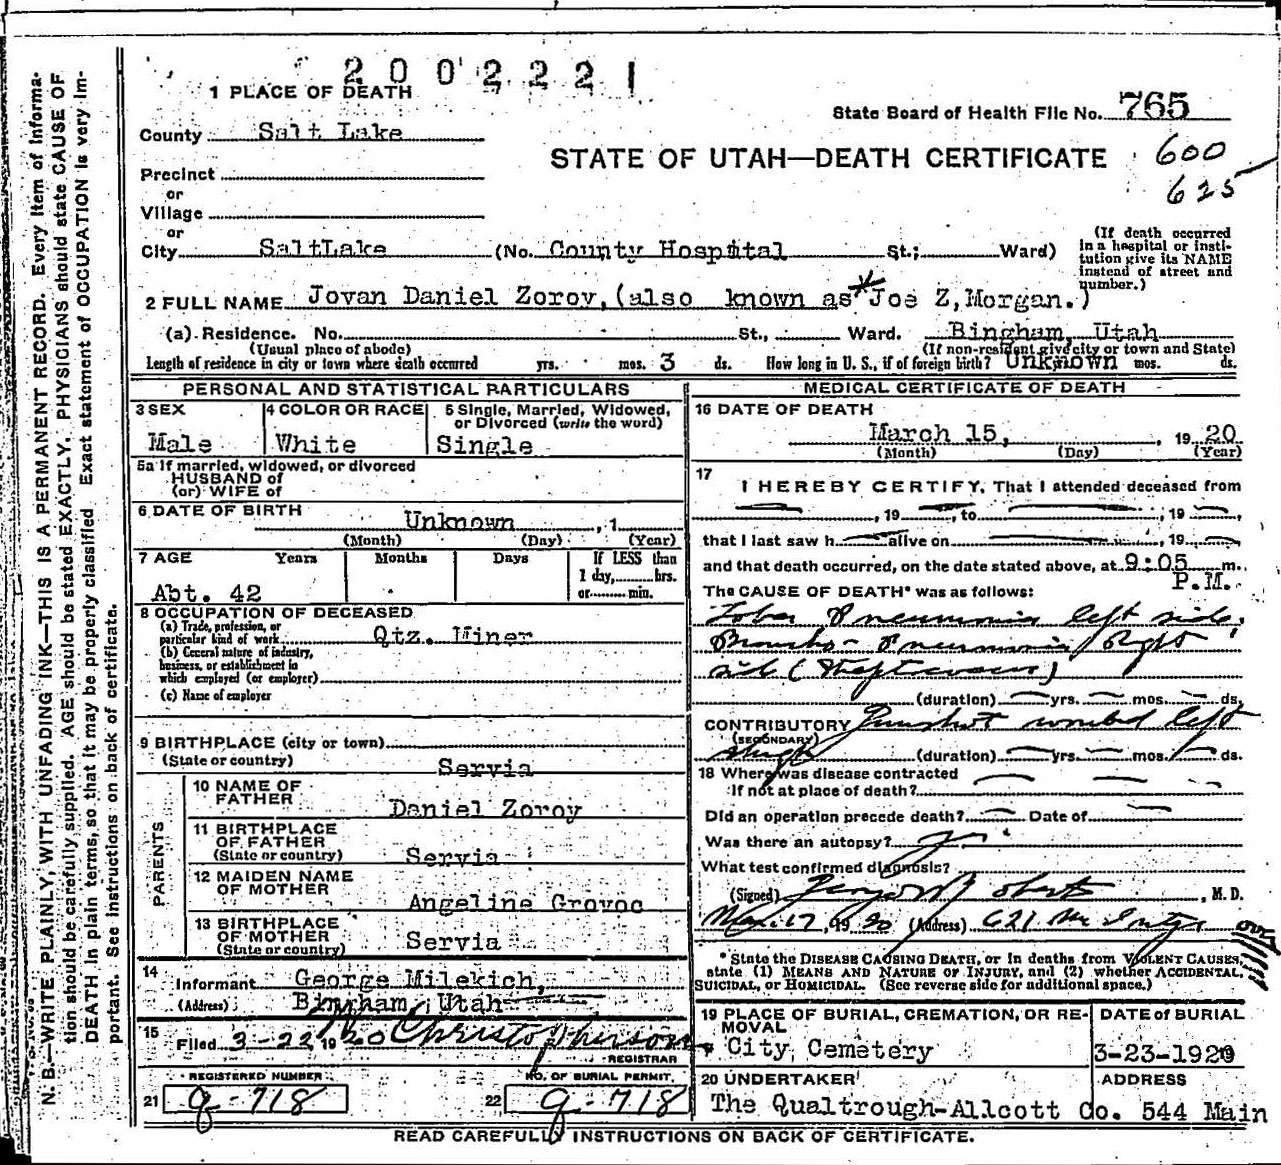 2002221
1 PLACE OF DEATH
State Board of Health File No. 765
County Salt Lake
STATE OF UTAH—DEATH CERTIFICATE
600
625
Precinct
or
Village
or
City SaltLake (No. County Hospital St.; Ward)
(If death occurred in a hospital or institution give its NAME instead of street and number.)
2 FULL NAME Jovan Daniel Zorov, (also known as * Joe Z, Morgan.)
(a). Residence. No. St., Ward. Bingham, Utah
(Usual place of abode) (If non-resident give city or town and State)
Length of residence in city or town where death occurred yrs. mos. 3 ds. How long in U. S., if of foreign birth? Unknown mos. ds.
PERSONAL AND STATISTICAL PARTICULARS
3 SEX
Male
4 COLOR OR RACE
White
5 Single, Married, Widowed, or Divorced (write the word)
Single
5a If married, widowed, or divorced
HUSBAND of
(or) WIFE of
6 DATE OF BIRTH Unknown, 1
(Month) (Day) (Year)
7 AGE Years Months Days If LESS than
1 day, hrs.
or min.
Abt. 42
8 OCCUPATION OF DECEASED
(a) Trade, profession, or
particular kind of work Qtz. Miner
(b) General nature of industry,
business, or establishment in
which employed (or employer)
(c) Name of employer
9 BIRTHPLACE (city or town)
(State or country) Servia
PARENTS
10 NAME OF FATHER Daniel Zorov
11 BIRTHPLACE OF FATHER
(State or country) Servia
12 MAIDEN NAME OF MOTHER Angeline Grovoc
13 BIRTHPLACE OF MOTHER
(State or country) Servia
14 Informant George Milekich,
(Address) Bingham, Utah
15 Filed 3-22, 1920 Christopherson
REGISTRAR
REGISTERED NUMBER
21 q-718
NO. OF BURIAL PERMIT.
22 q-718
MEDICAL CERTIFICATE OF DEATH
16 DATE OF DEATH
March 15, , 19 20
(Month) (Day) (Year)
17 I HEREBY CERTIFY, That I attended deceased from
, 19 , to , 19 ,
that I last saw h alive on , 19 ,
and that death occurred, on the date stated above, at 9:05 m.
P.M.
The CAUSE OF DEATH* was as follows:
Lobar Pneumonia left side,
Broncho-Pneumonia Right
side (Streptococcus)
(duration) yrs. mos. ds.
CONTRIBUTORY Gunshot wound left
(SECONDARY)
thigh (duration) yrs. mos. ds.
18 Where was disease contracted
If not at place of death?
Did an operation precede death? Date of
Was there an autopsy? yes
What test confirmed diagnosis?
(Signed) Roberts, M. D.
Mar. 17, 1920 (Address) 621
*State the DISEASE CAUSING DEATH, or in deaths from VIOLENT CAUSES,
state (1) MEANS AND NATURE OF INJURY, and (2) whether ACCIDENTAL,
SUICIDAL, or HOMICIDAL. (See reverse side for additional space.)
19 PLACE OF BURIAL, CREMATION, OR REMOVAL
City, Cemetery
DATE of BURIAL
3-23-1920
20 UNDERTAKER
The Qualtrough-Allcott Co.
ADDRESS
544 Main
READ CAREFULLY INSTRUCTIONS ON BACK OF CERTIFICATE.
N. B.—WRITE PLAINLY, WITH UNFADING INK—THIS IS A PERMANENT RECORD. Every item of informa-
tion should be carefully supplied. AGE should be stated EXACTLY. PHYSICIANS should state CAUSE OF
DEATH in plain terms, so that it may be properly classified. Exact statement of OCCUPATION is very im-
portant. See instructions on back of certificate.